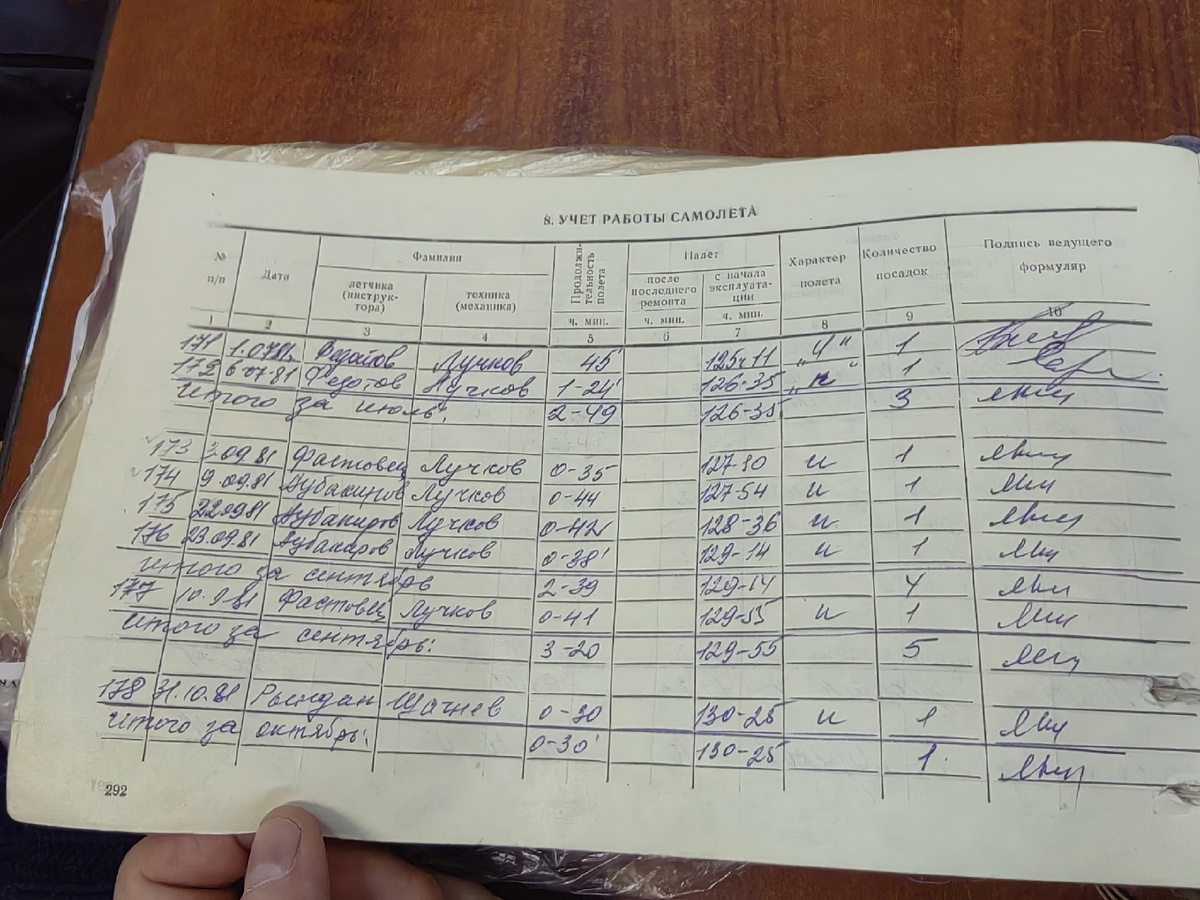 8. УЧЕТ РАБОТЫ САМОЛЕТА
№ п/п Дата Фамилия Продолжи-тельность полета Налет Характер полета Количество посадок Подпись ведущего формуляр
летчика (инструк-тора) техника (механика) после последнего ремонта с начала эксплуата-ции
ч. мин. ч. мин. ч. мин.
1 2 3 4 5 6 7 8 9 10
171 1.07.81 Федотов Лучков 45' 125ч11 „И" 1
172 6.07.81 Федотов Лучков 1-24' 126-35 „и" 1
Итого за июль: 2-49 126-35 3
173 3.09.81 Фастовец Лучков 0-35 127-10 и 1
174 9.09.81 Аубакиров Лучков 0-44 127-54 и 1
175 22.09.81 Аубакиров Лучков 0-42 128-36 и 1
176 23.09.81 Аубакиров Лучков 0-38' 129-14 и 1
Итого за сентябрь 2-39 129-14 4
177 10.9.81 Фастовец Лучков 0-41 129-55 и 1
Итого за сентябрь: 3-20 129-55 5
178 31.10.81 Щачнев 0-30 130-25 и 1
Итого за октябрь: 0-30' 130-25 1
292